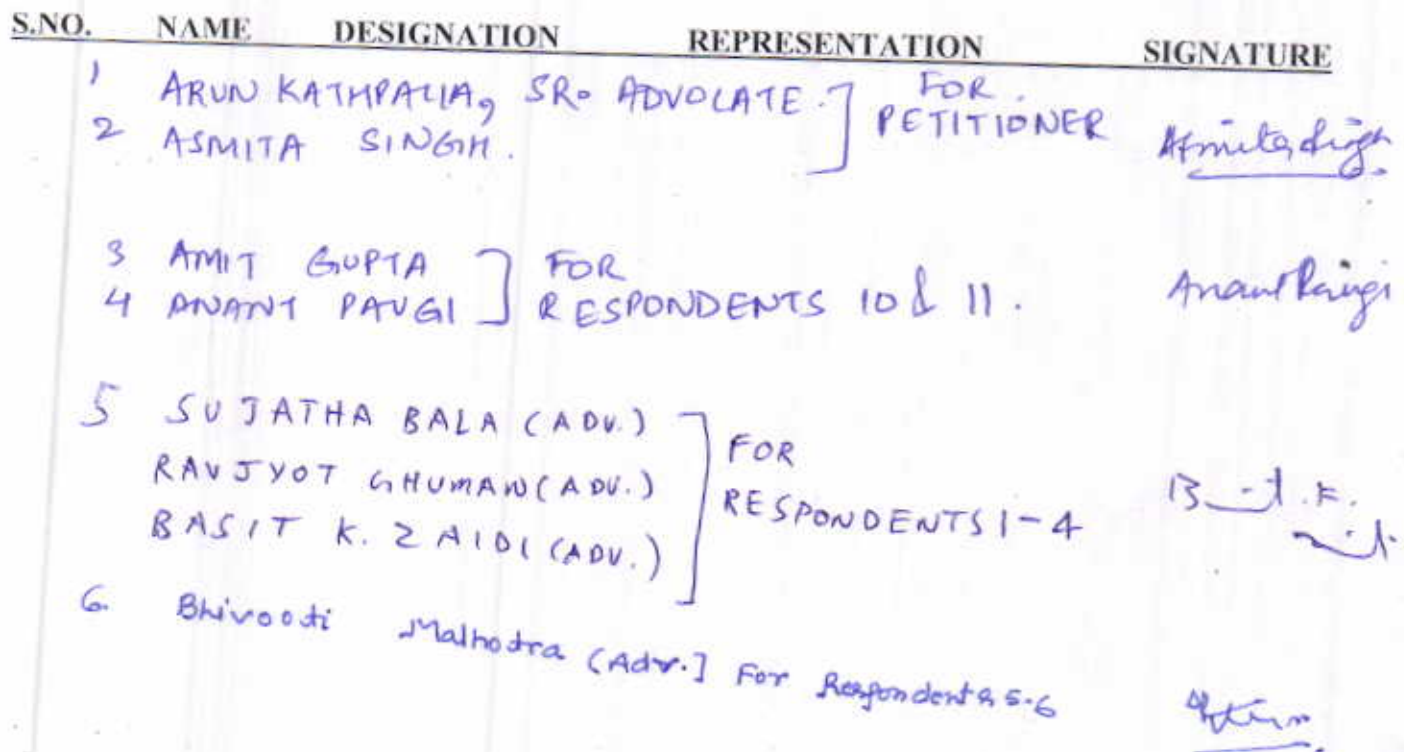 S.NO. NAME DESIGNATION REPRESENTATION SIGNATURE
1 ARUN KATHPALIA, SR. ADVOCATE. ] FOR.
2 ASMITA SINGH. PETITIONER Asmita Singh
3 AMIT GUPTA ] FOR
4 ANANT PAVGI RESPONDENTS 10 & 11. Anant Pavgi
5 SUJATHA BALA (ADV.)
RAVJYOT GHUMAN (ADV.) ] FOR
BASIT K. ZAIDI (ADV.) RESPONDENTS 1-4
6. Bhivooti Malhotra (Adv.] For Respondents 5-6